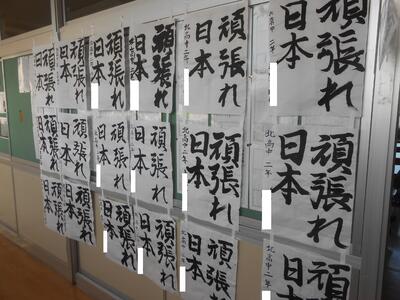 頑張れ
日本
北高中 二年
頑張れ
日本
北高中 二年
頑張れ
日本
頑張れ
日本
頑張れ
日本
頑張れ
日本
頑張れ
日本
北高中 二年
頑張れ
日本
北高中 二年
頑張れ
日本
頑張れ
日本
頑張れ
日本
頑張れ
日本
頑張
日本
北高中 二年
頑張れ
日本
頑張れ
日本
頑張れ
日本
頑張れ
日本
頑張れ
日本